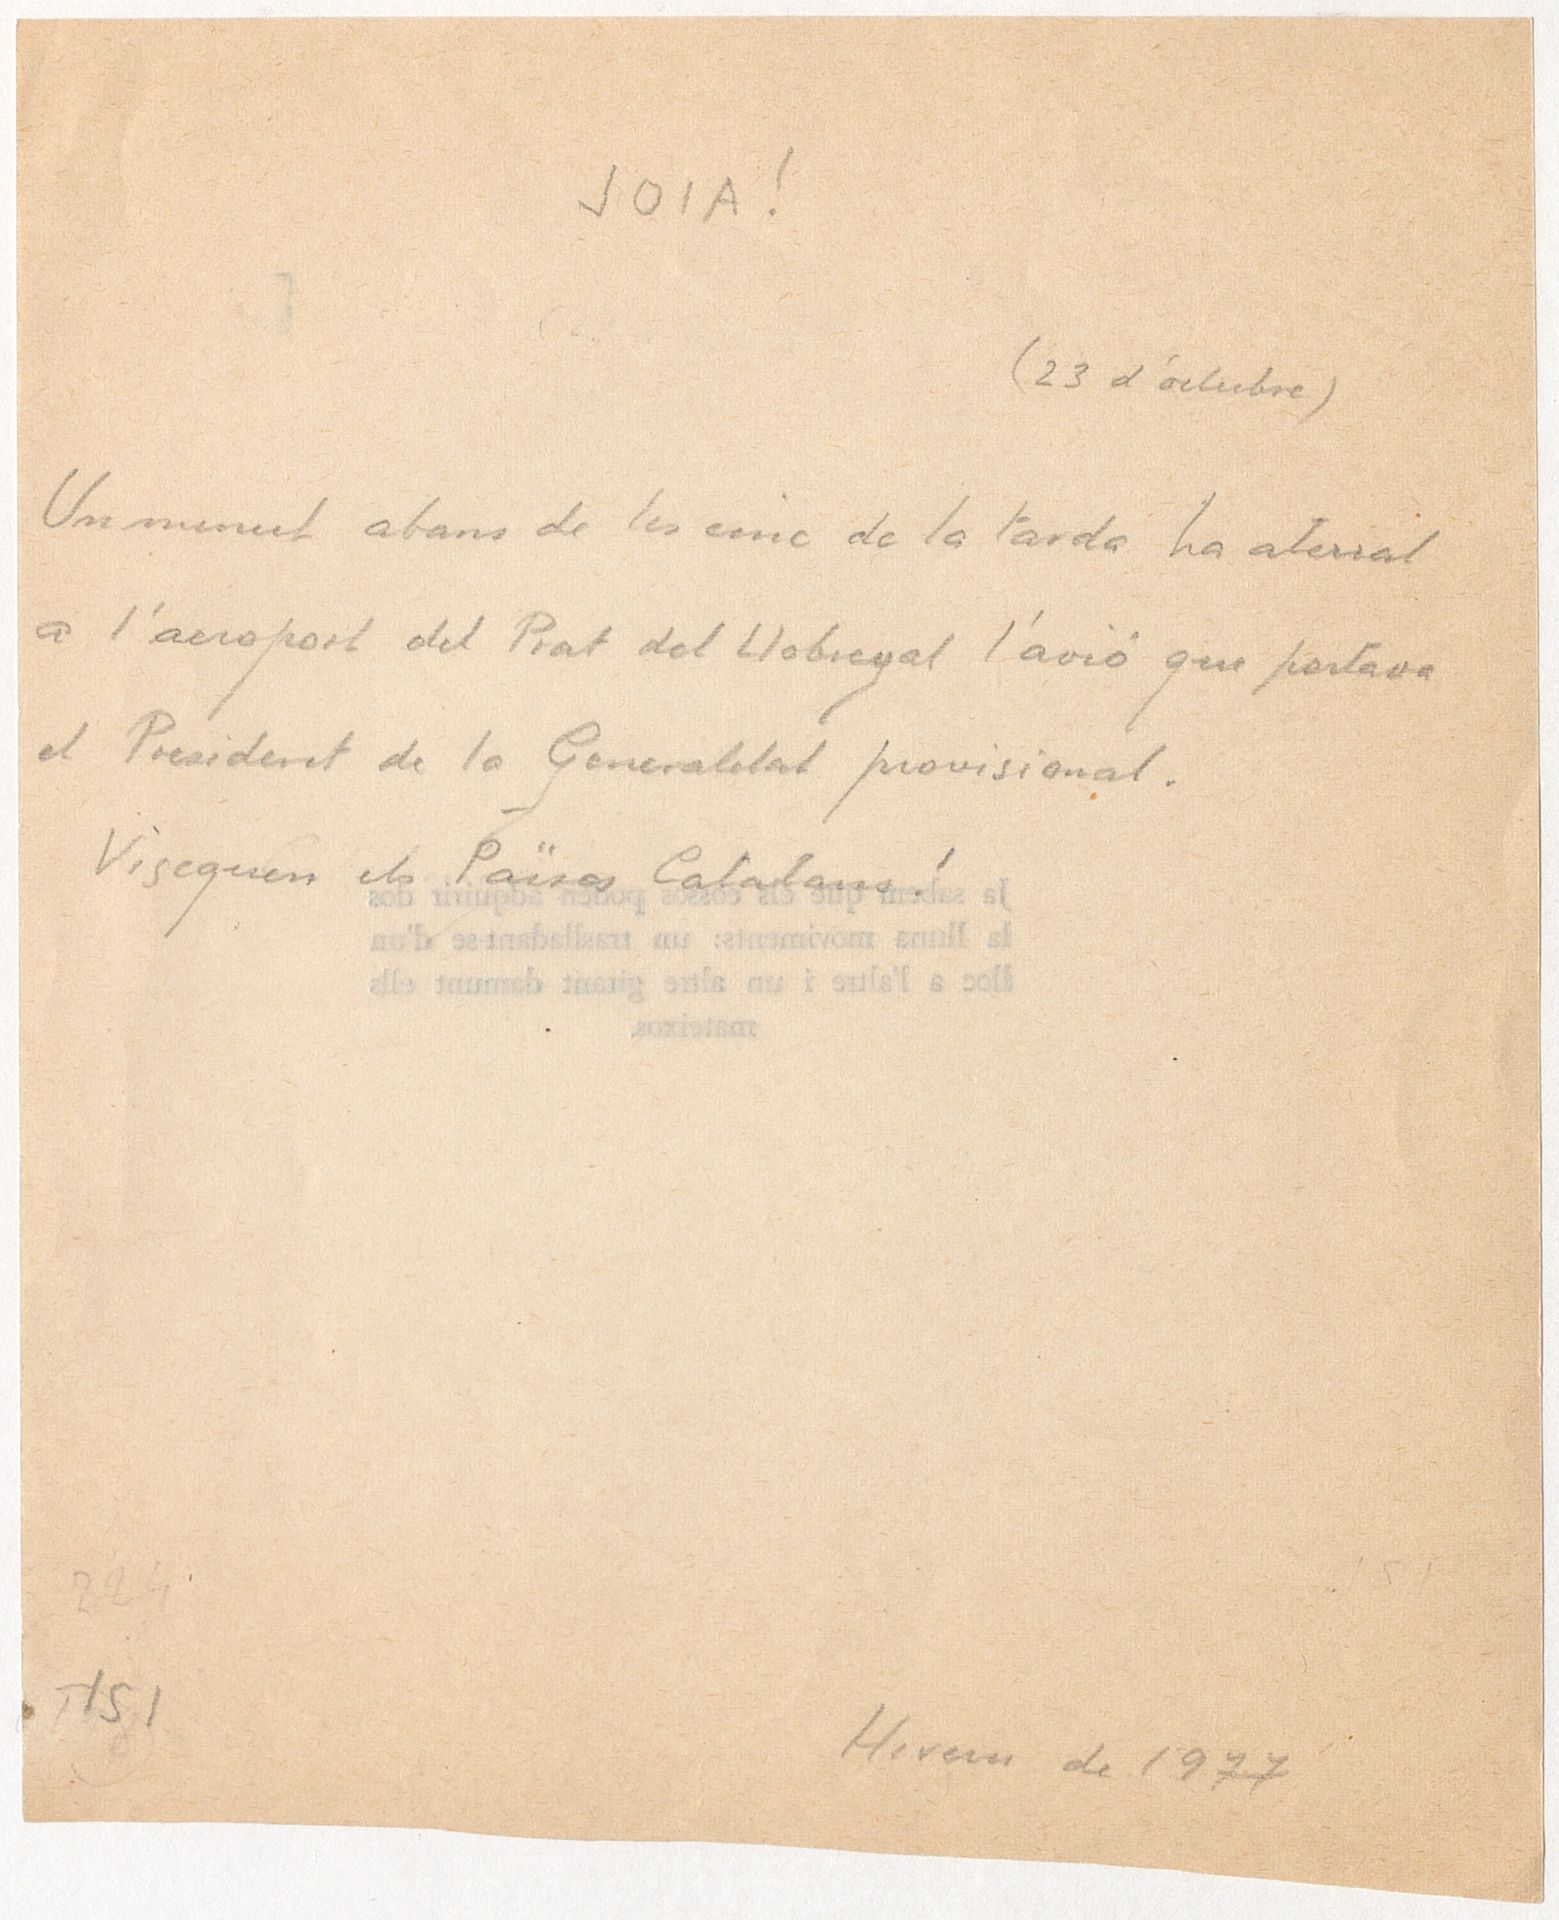 JOIA!
(23 d'octubre)
Un minut abans de les cinc de la tarda ha aterrat
a l'aeroport del Prat del Llobregat l'avió que portava
el President de la Generalitat provisional.
Visquen els Països Catalans!
Ja sabem que els cossos poden adquirir dos
la lluna moviments: un traslladant-se d'un
lloc a l'altre i un altre girant damunt ells
mateixos.
224
151
151
Hivern de 1977